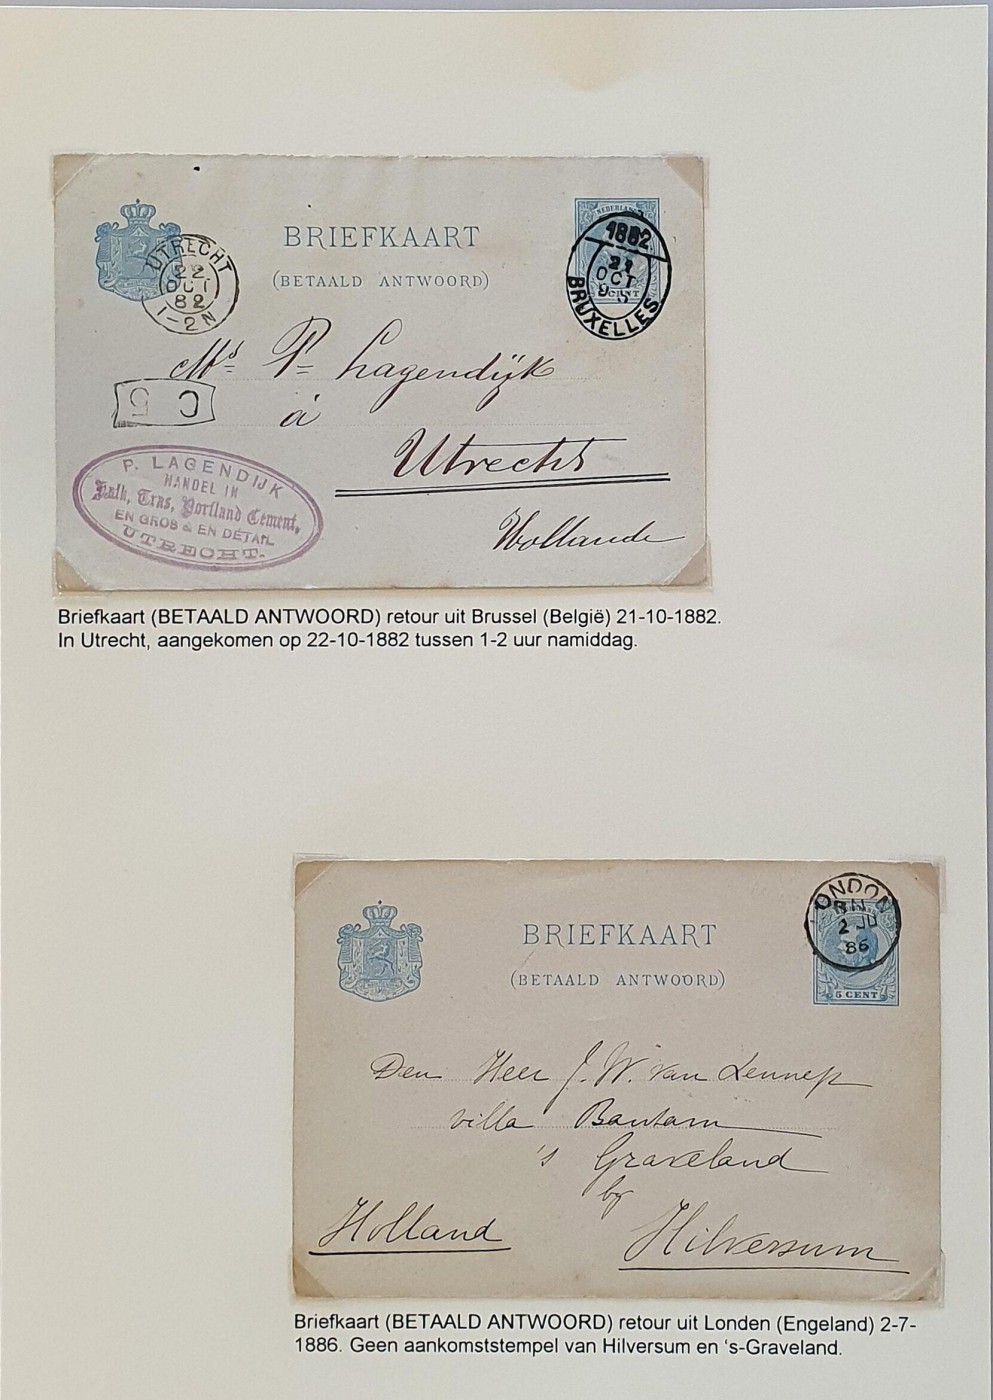 BRIEFKAART
(BETAALD ANTWOORD)
UTRECHT
22
OCT
82
1-2N
NEDERLAND
CENT
1882.
21
OCT
BRUXELLES
Mr P= Lagendijk
à
Utrecht
Hollande
C 5
P. LAGENDIJK
HANDEL IN
Kalk, Tras, Portland Cement,
EN GROS & EN DÉTAIL
UTRECHT.
Briefkaart (BETAALD ANTWOORD) retour uit Brussel (België) 21-10-1882.
In Utrecht, aangekomen op 22-10-1882 tussen 1-2 uur namiddag.
BRIEFKAART
(BETAALD ANTWOORD)
ONDON
2 JU
86
5 CENT
Den Heer J. W. van Lennep
villa Bantam
's Graveland
by
Hilversum
Holland
Briefkaart (BETAALD ANTWOORD) retour uit Londen (Engeland) 2-7-
1886. Geen aankomststempel van Hilversum en ‘s-Graveland.